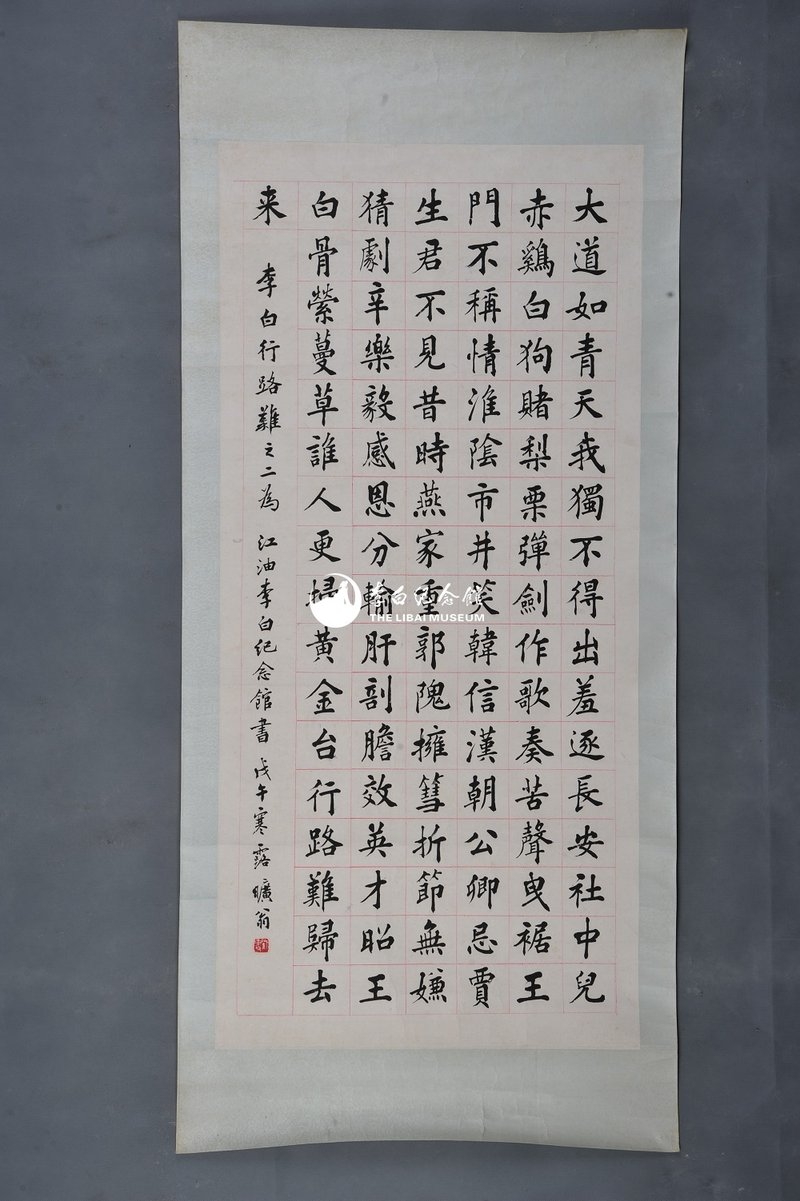 大道如青天我獨不得出羞逐長安社中兒
赤鷄白狗賭梨栗彈劍作歌奏苦聲曳裾王
門不稱情淮陰市井笑韓信漢朝公卿忌賈
生君不見昔時燕家重郭隗擁篲折節無嫌
猜劇辛樂毅感恩分輸肝剖膽效英才昭王
白骨縈蔓草誰人更掃黃金台行路難歸去
来
李白行路難之二為 江油李白纪念館書 戊午寒露 曠翁
李白纪念館
THE LIBAI MUSEUM